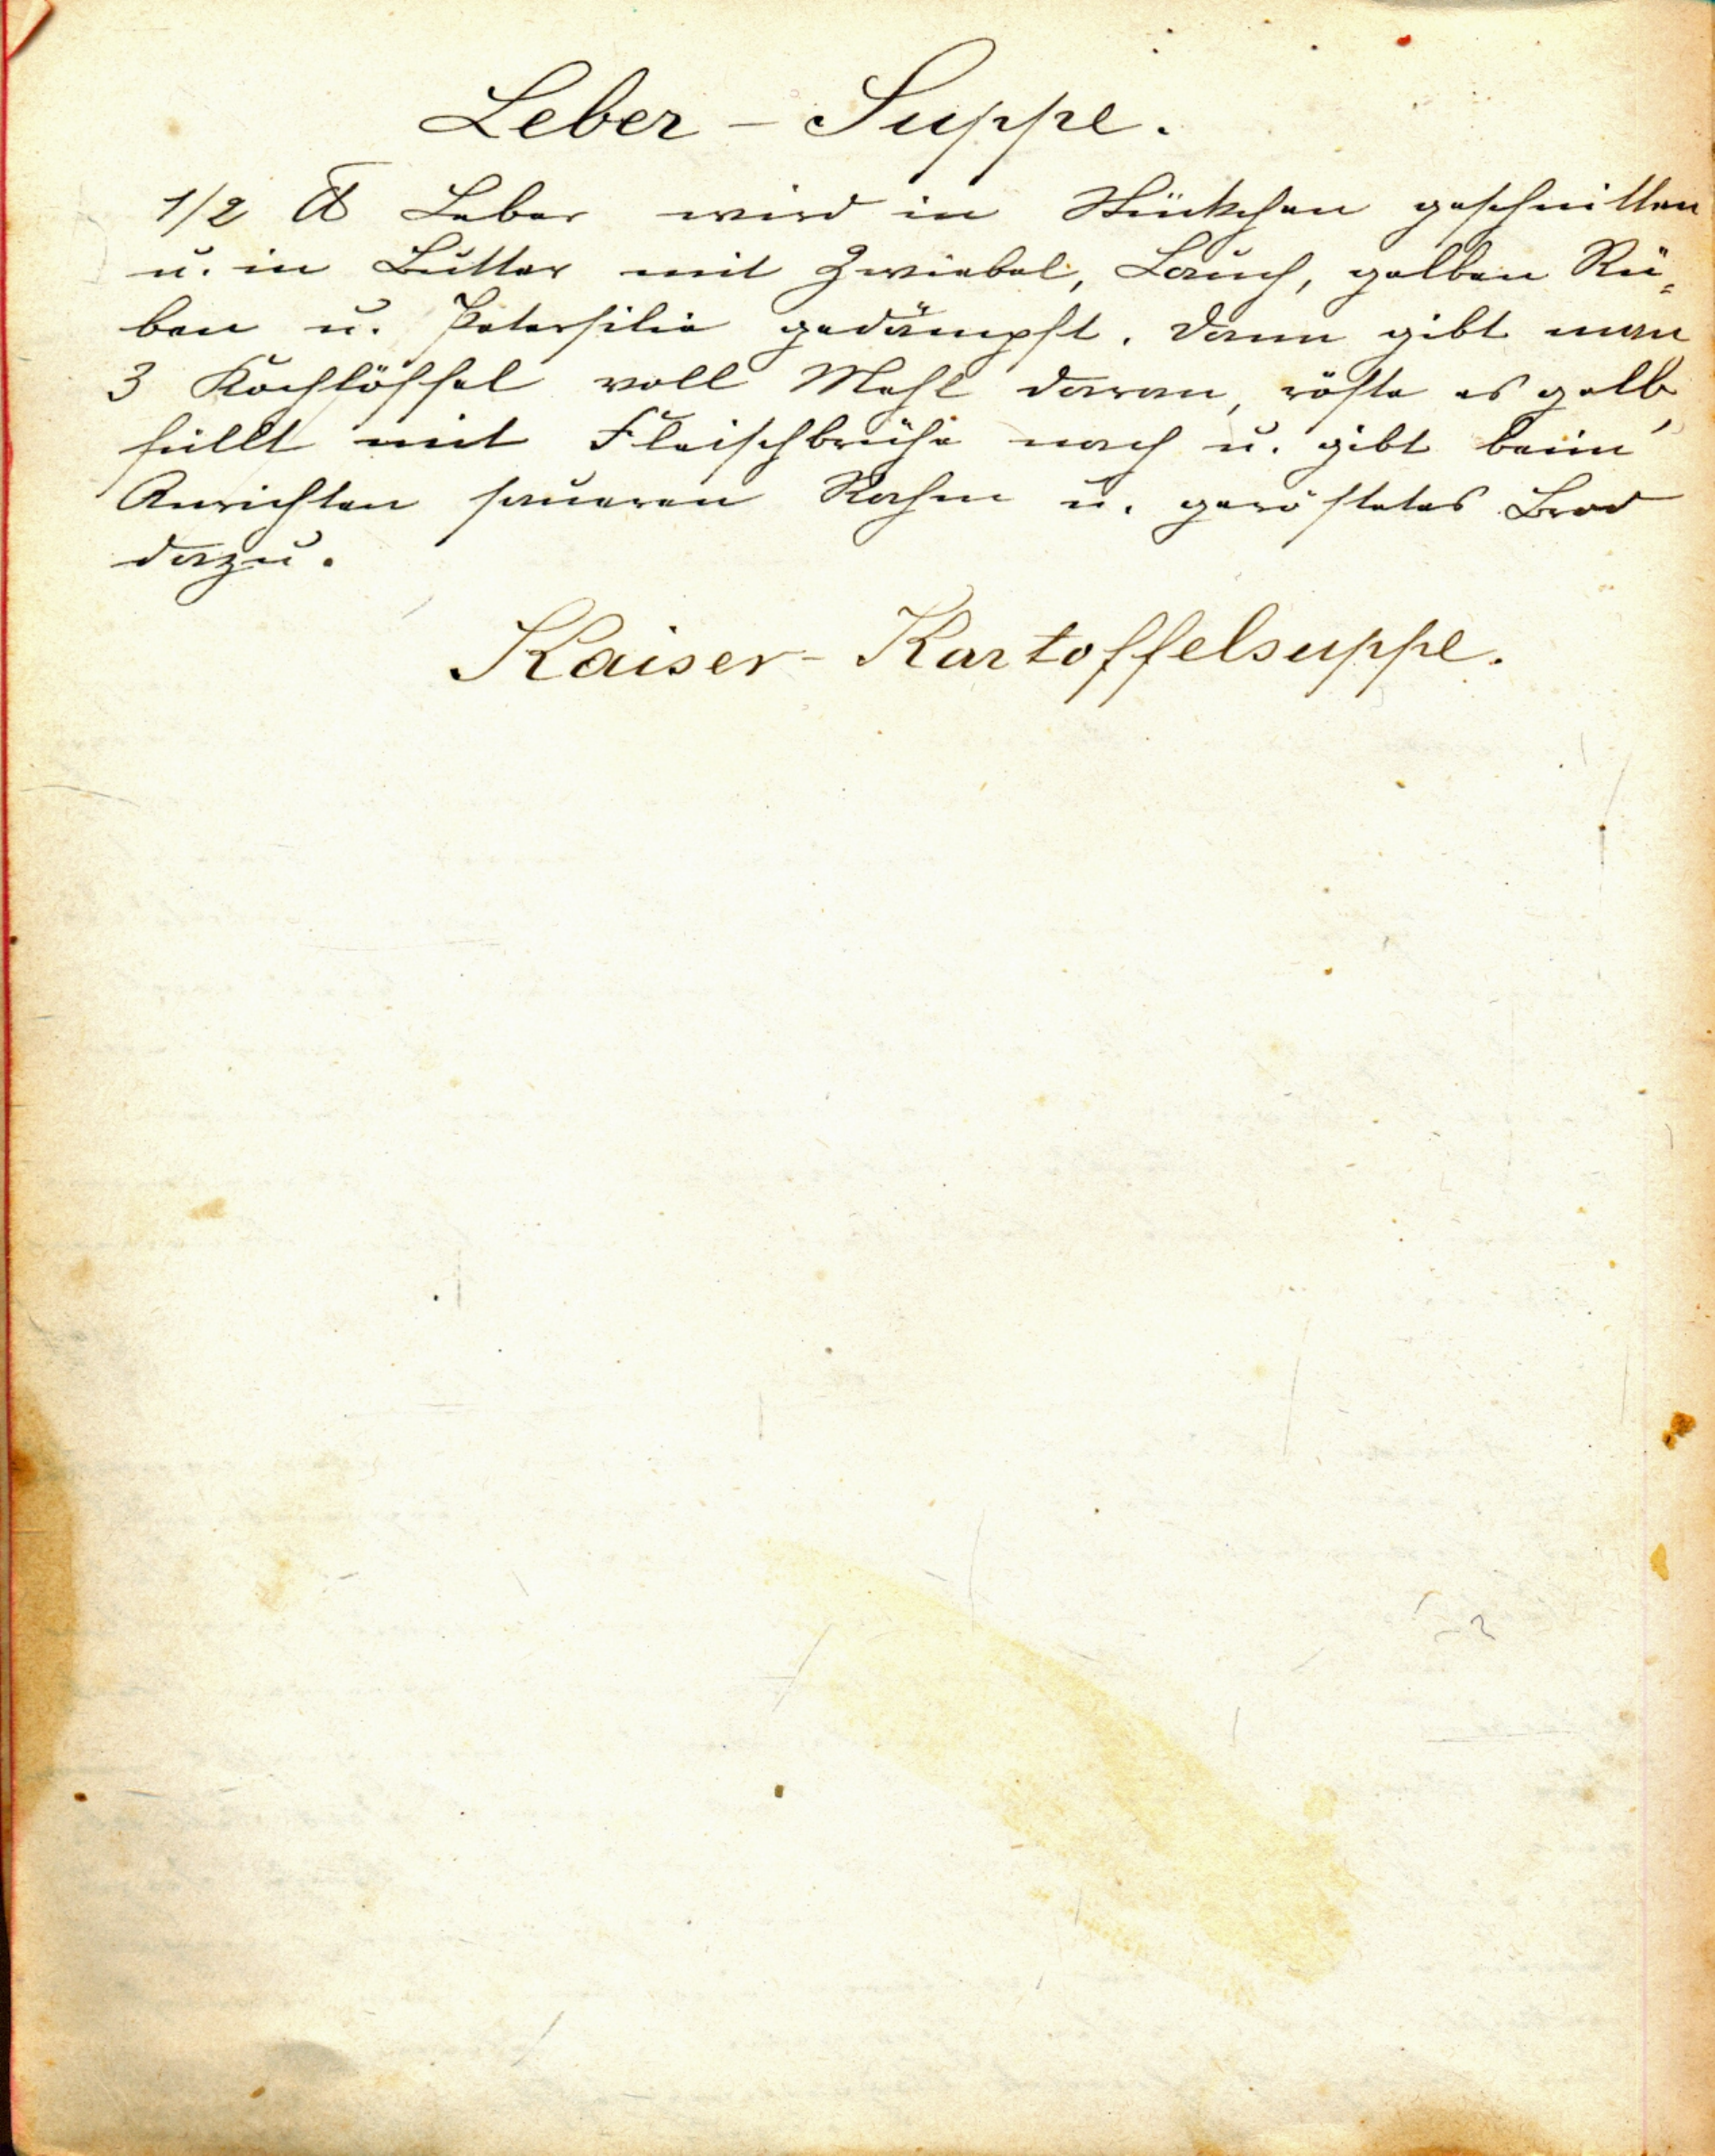 Leber - Suppe.
1/2 ℔ Leber wird in Stückchen geschnitten
u. in Butter mit Zwiebel, Lauch, gelben Rü-
ben u. Petersilie gedämpft. Dann gibt man
3 Kochlöffel voll Mehl daran, röste es gelb
füllt mit Fleischbrühe nach u. gibt beim
Anrichten saueren Rahm u. geröstetes Brod
dazu.
Kaiser-Kartoffelsuppe.